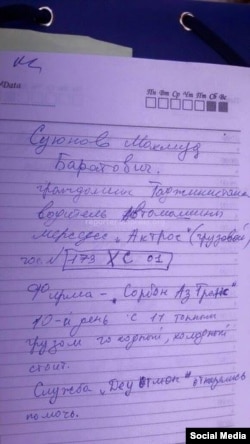 /Data
Пн Вт Ср Чт Пт Сб Вс
Суюнов Махмуд
Баратович.
гражданин Таджикистана
водитель автомашины
мерседес „Актрос" (грузовой)
гос. N 179 ХС 01
Фирма - „Сорбон Аз Транс"
10-й день с 11 тонным
грузом голодный, холодный
стоит.
Служба
помочь.
Social Media